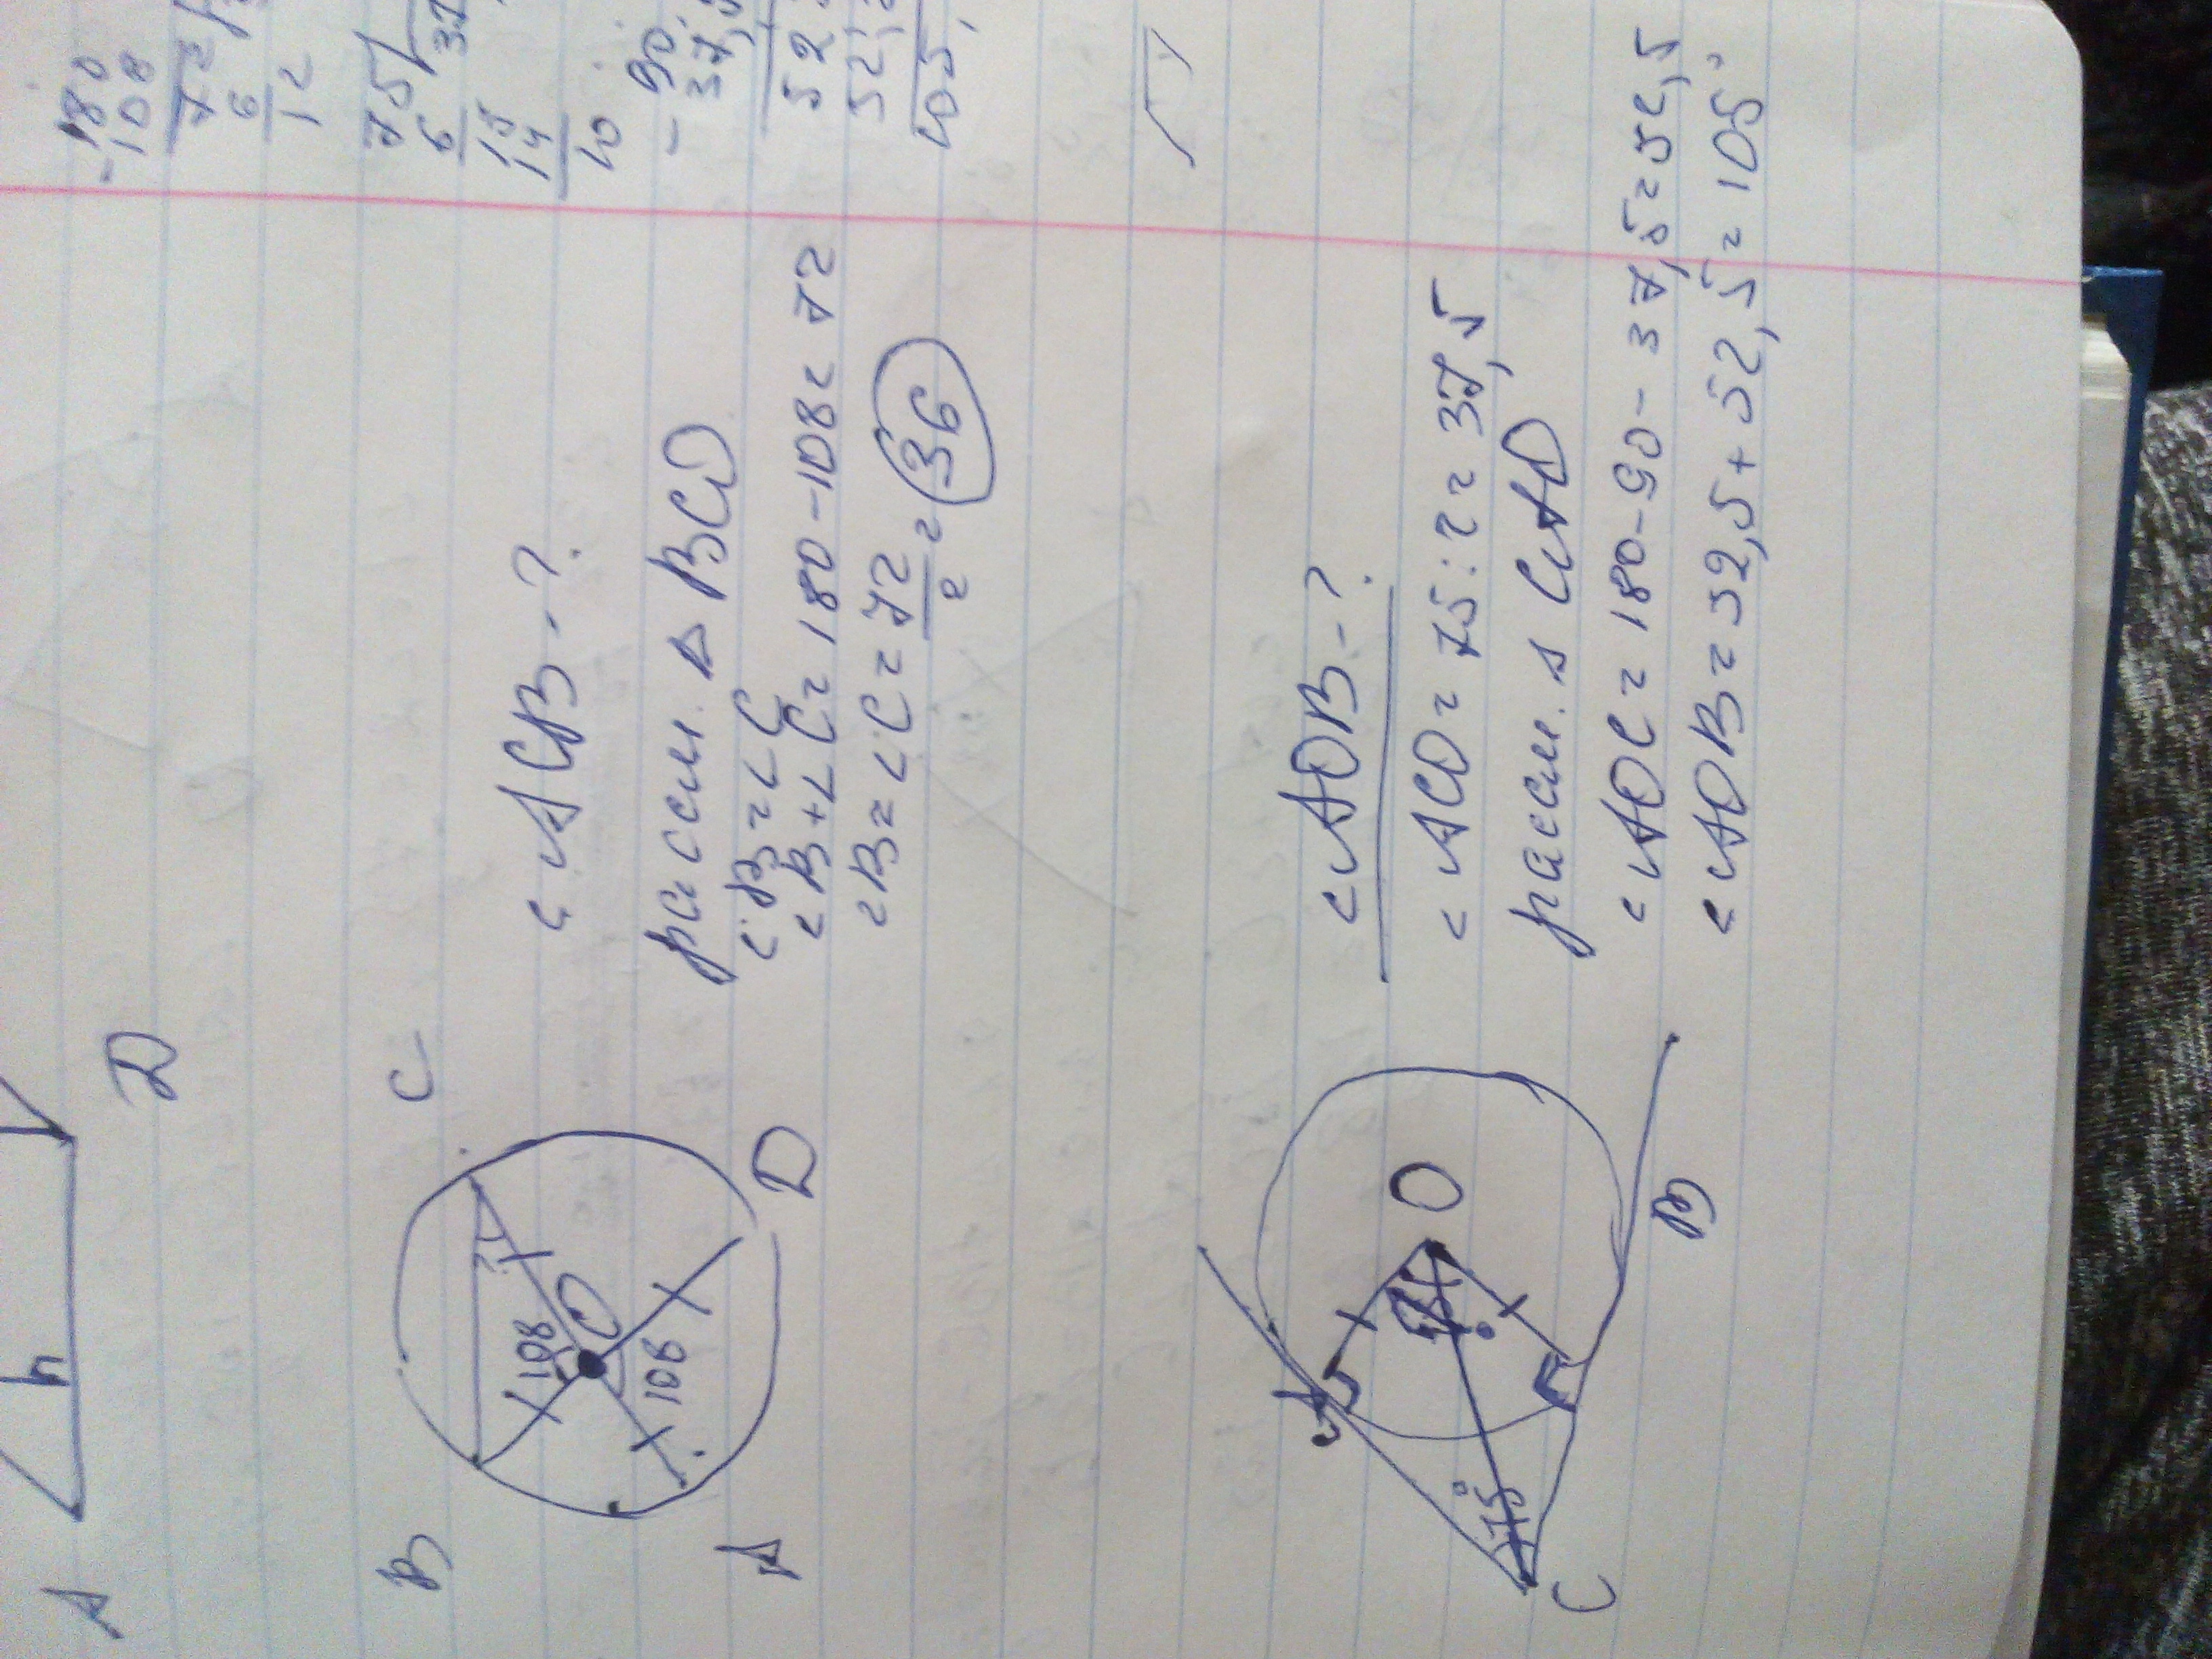 A
h
D
- 180
108
72
6
12
B
C
108
O
108
A
D
< ACB - ?
рассм. Δ BCO
< B = < C
< B + < C = 180 - 108 = 72
< B = < C = 72/2 = 36
75
6
15
14
10
- 90
37,
52
105,
A
O
75°
C
B
< AOB - ?
< ACO = 75 : 2 = 37,5
рассм. Δ CAO
< AOC = 180 - 90 - 37,5 = 52,5
< AOB = 52,5 + 52,5 = 105°